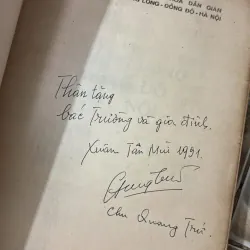 HÓA DÂN GIAN
LONG-ĐÔNG ĐÔ-HÀ NỘI
Thân tặng
bác Trường và gia đình.
Xuân Tân Mùi 1991.
Chu Quang Trứ